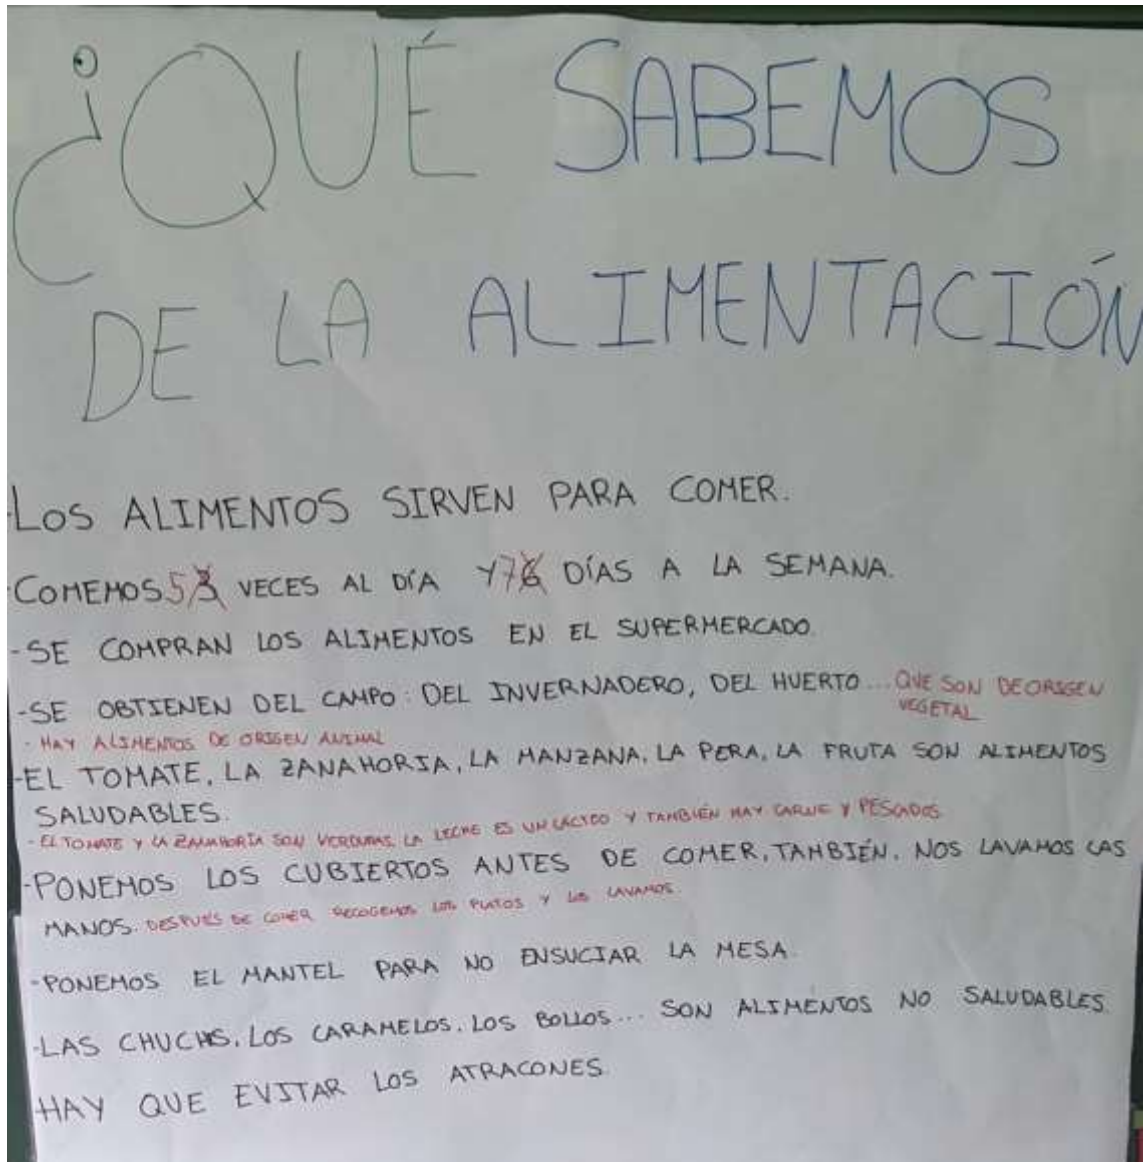 ¿QUÉ SABEMOS
DE LA ALIMENTACIÓN
LOS ALIMENTOS SIRVEN PARA COMER.
-COMEMOS 5 3 VECES AL DÍA Y 7 6 DÍAS A LA SEMANA.
-SE COMPRAN LOS ALIMENTOS EN EL SUPERMERCADO.
-SE OBTIENEN DEL CAMPO: DEL INVERNADERO, DEL HUERTO... QUE SON DE ORIGEN
VEGETAL
- HAY ALIMENTOS DE ORIGEN ANIMAL
-EL TOMATE, LA ZANAHORIA, LA MANZANA, LA PERA, LA FRUTA SON ALIMENTOS
SALUDABLES.
- EL TOMATE Y LA ZANAHORIA SON VERDURAS. LA LECHE ES UN LÁCTEO Y TAMBIÉN HAY CARNE Y PESCADOS.
-PONEMOS LOS CUBIERTOS ANTES DE COMER, TAMBIÉN, NOS LAVAMOS LAS
MANOS. DESPUÉS DE COMER RECOGEMOS LOS PLATOS Y LOS LAVAMOS.
-PONEMOS EL MANTEL PARA NO ENSUCIAR LA MESA.
-LAS CHUCHES, LOS CARAMELOS, LOS BOLLOS... SON ALIMENTOS NO SALUDABLES.
-HAY QUE EVITAR LOS ATRACONES.